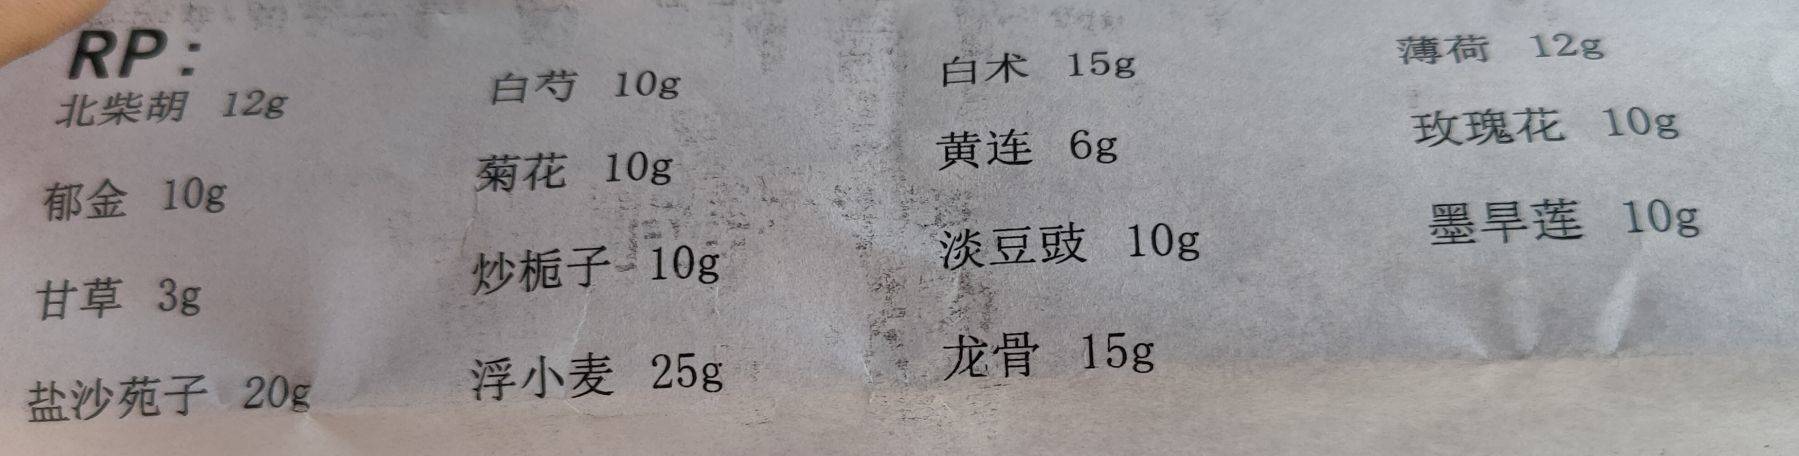 RP:
北柴胡 12g 白芍 10g 白术 15g 薄荷 12g
郁金 10g 菊花 10g 黄连 6g 玫瑰花 10g
甘草 3g 炒栀子 10g 淡豆豉 10g 墨旱莲 10g
盐沙苑子 20g 浮小麦 25g 龙骨 15g